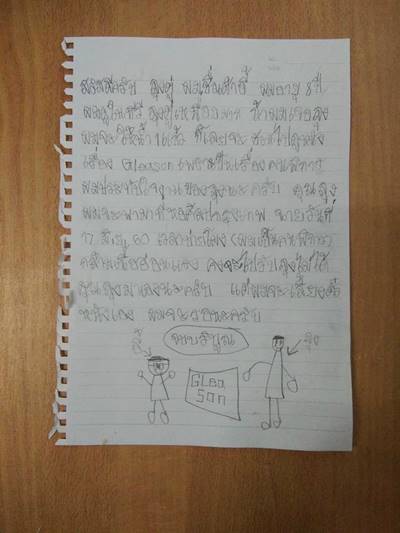 สวัสดีครับ ลุงตู่ ผมชื่อ ผมอายุ 8 ปี
ผมดูในทีวี ลุงตู่เหนื่อยมาก ถ้าผมเจอลุง
ผมจะให้ ที่เลยจะชวนไปดูหนัง
เรื่อง Gleason เพราะเป็นเรื่องคนพิการ
ผมประทับใจงานของลุงนะครับ คุณลุง
ผมจะพามาที่หอศิลป์กรุงเทพ ฉายวันที่
17 60 เวลาบ่ายโมง (ผมเป็นคนพิการ)
กล้ามเนื้ออ่อนแรง คงจะไปรับลุงไม่ได้
คุณลุงมาเองนะครับ แต่ผมจะเลี้ยงตั๋ว
หนังเอง ผมจะรอนะครับ
ขอบคุณ
ลุง
Glea
son